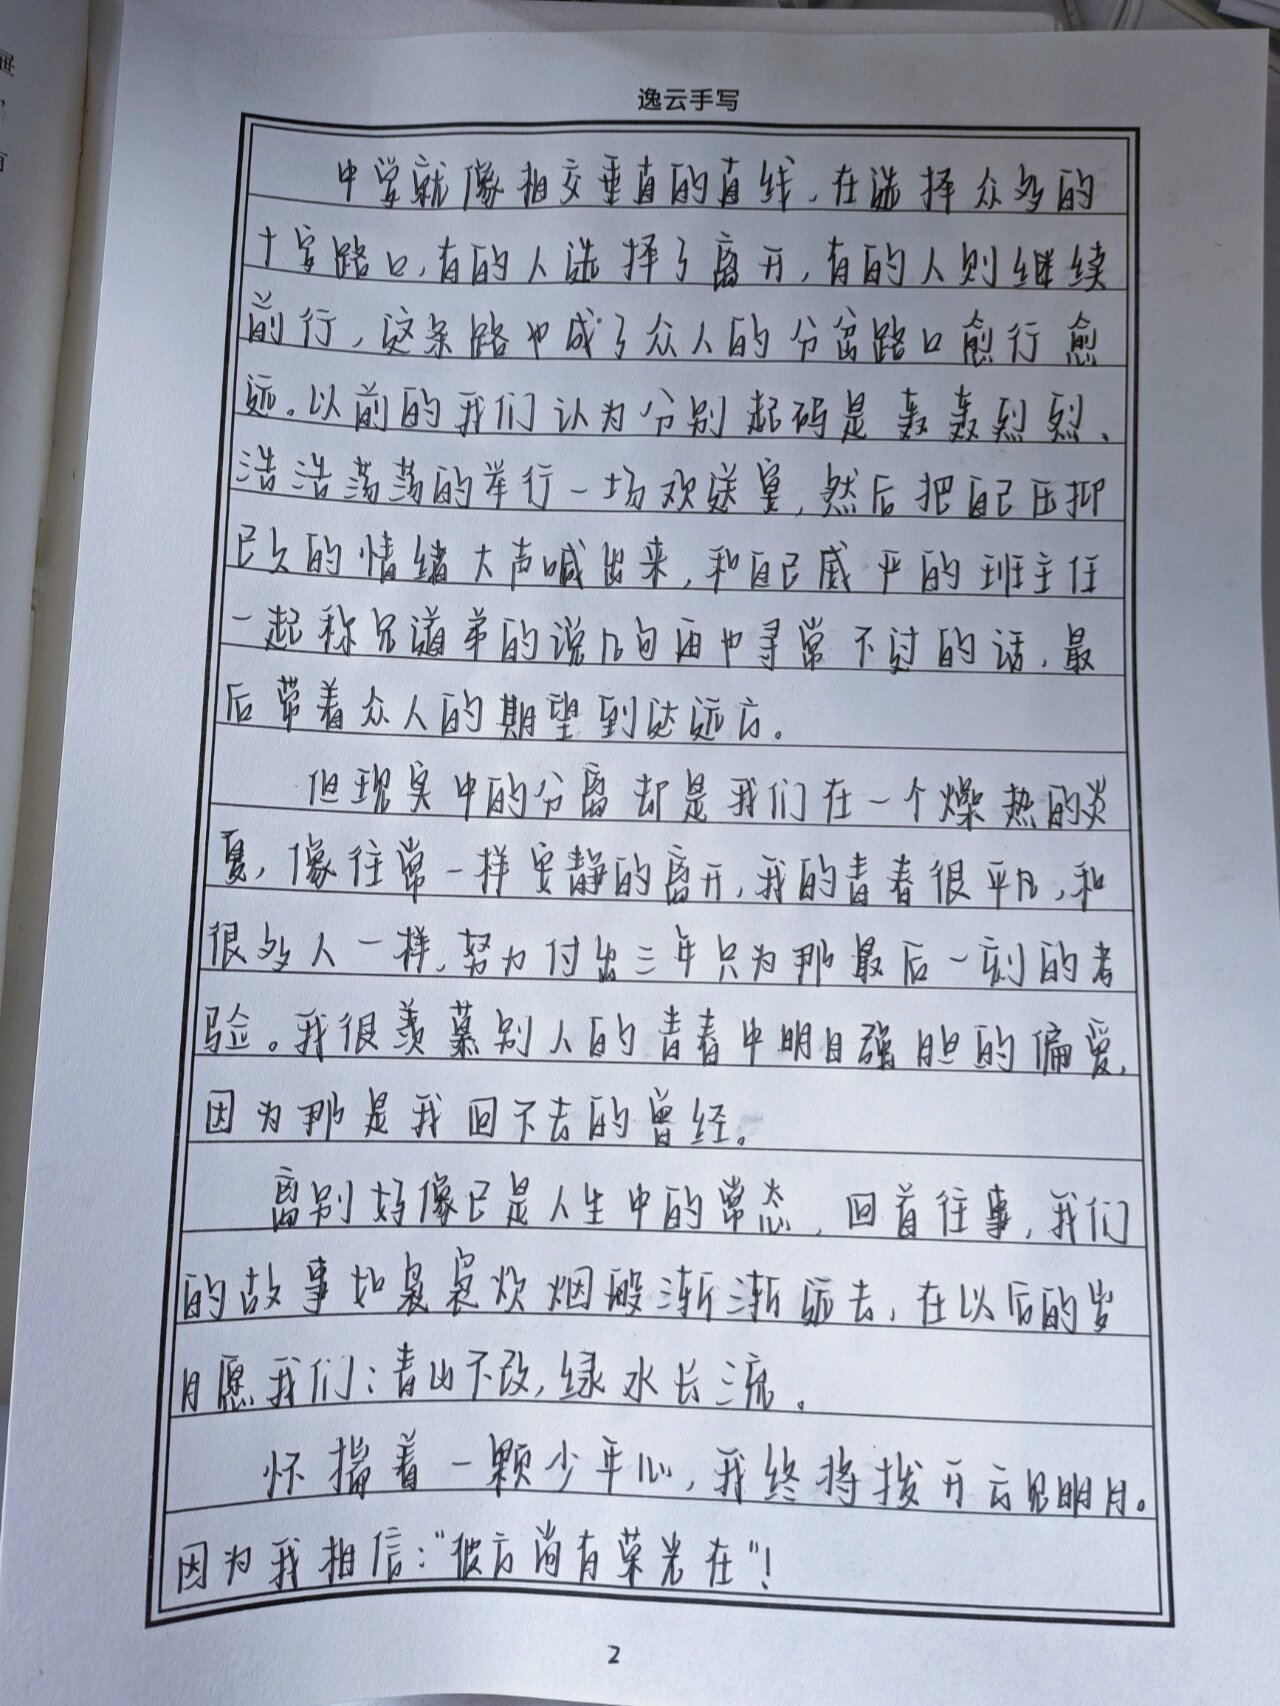 逸云手写
中学就像相交垂直的直线，在选择众多的
十字路口，有的人选择了离开，有的人则继续
前行，这条路也成了众人的分岔路口愈行愈
远。以前的我们认为分别起码是轰轰烈烈、
浩浩荡荡的举行一场欢送宴，然后把自己压抑
已久的情绪大声喊出来，和自己威严的班主任
一起称兄道弟的说几句再也寻常不过的话，最
后带着众人的期望到达远方。
但现实中的分离却是我们在一个燥热的炎
夏，像往常一样安静的离开，我的青春很平凡，和
很多人一样，努力付出三年只为那最后一刻的考
验。我很羡慕别人的青春中明目张胆的偏爱，
因为那是我回不去的曾经。
离别好像已是人生中的常态，回首往事，我们
的故事如袅袅炊烟般渐渐远去，在以后的岁
月愿我们：青山不改，绿水长流。
怀揣着一颗少年心，我终将拨开云见明月。
因为我相信：“彼方尚有荣光在”！
2